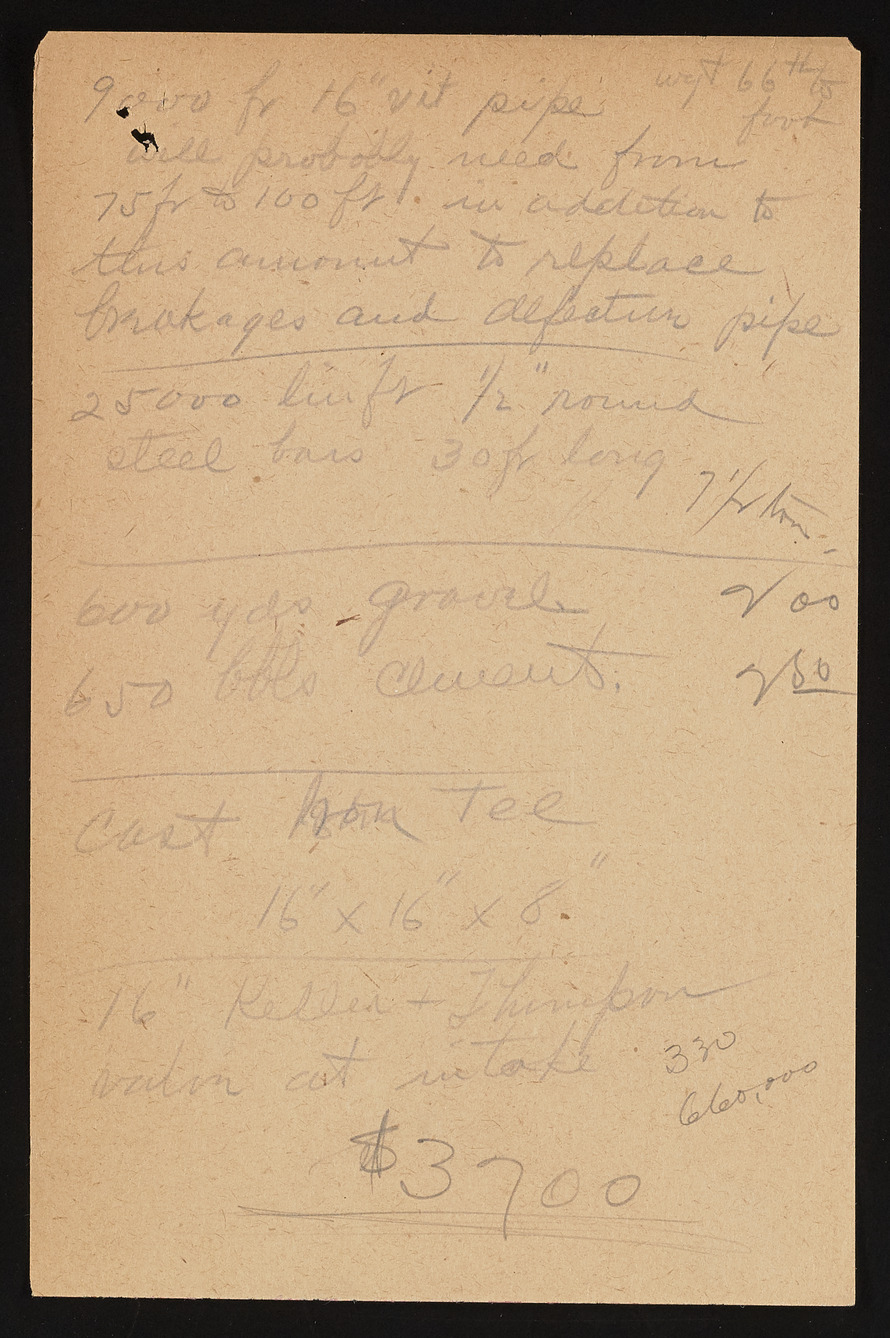 9000 ft 16" vit pipe
wgt 66 lb to
foot
will probably need from
75 ft to 100 ft. in addition to
this amount to replace
brakages and defective pipe
25000 lin ft 1/2" round
steel bars 30 ft long
600 yds gravel 2 00
650 bbls cement. 2 50
Cast Iron Tee
16" x 16" x 8"
16" + Thompson
at intake
330
660,000
$3700